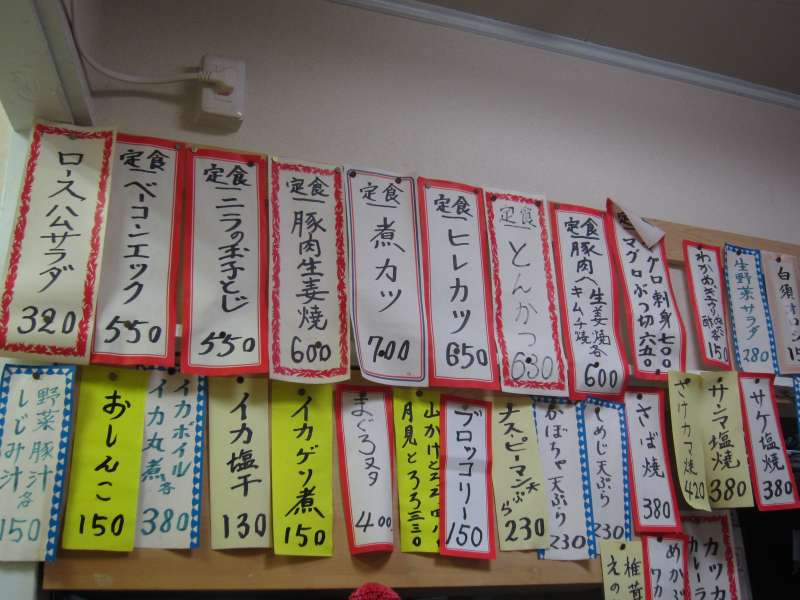 ロースハムサラダ
320
定食
ベーコンエッグ
550
定食
ニラの玉子とじ
550
定食
豚肉生姜焼
600
定食
煮カツ
700
定食
ヒレカツ
650
定食
とんかつ
630
定食
豚肉
生姜焼
キムチ焼
各
600
定
刺身七〇〇
マグロぶつ切六五〇
150
生野菜サラダ
280
野菜豚汁
しじみ汁各
150
おしんこ
150
イカボイル
イカ丸煮各
380
イカ塩干
130
イカゲソ煮
150
まぐろヌタ
400
月見とろろ三三〇
ブロッコリー
150
ナス・ピーマン天ぷら
230
かぼちゃ天ぷら
230
しめじ天ぷら
230
さば焼
380
さけカマ焼
420
サンマ塩焼
380
サケ塩焼
380
椎茸
えの
めかぶ
ワカ
カツカ
カレーラ